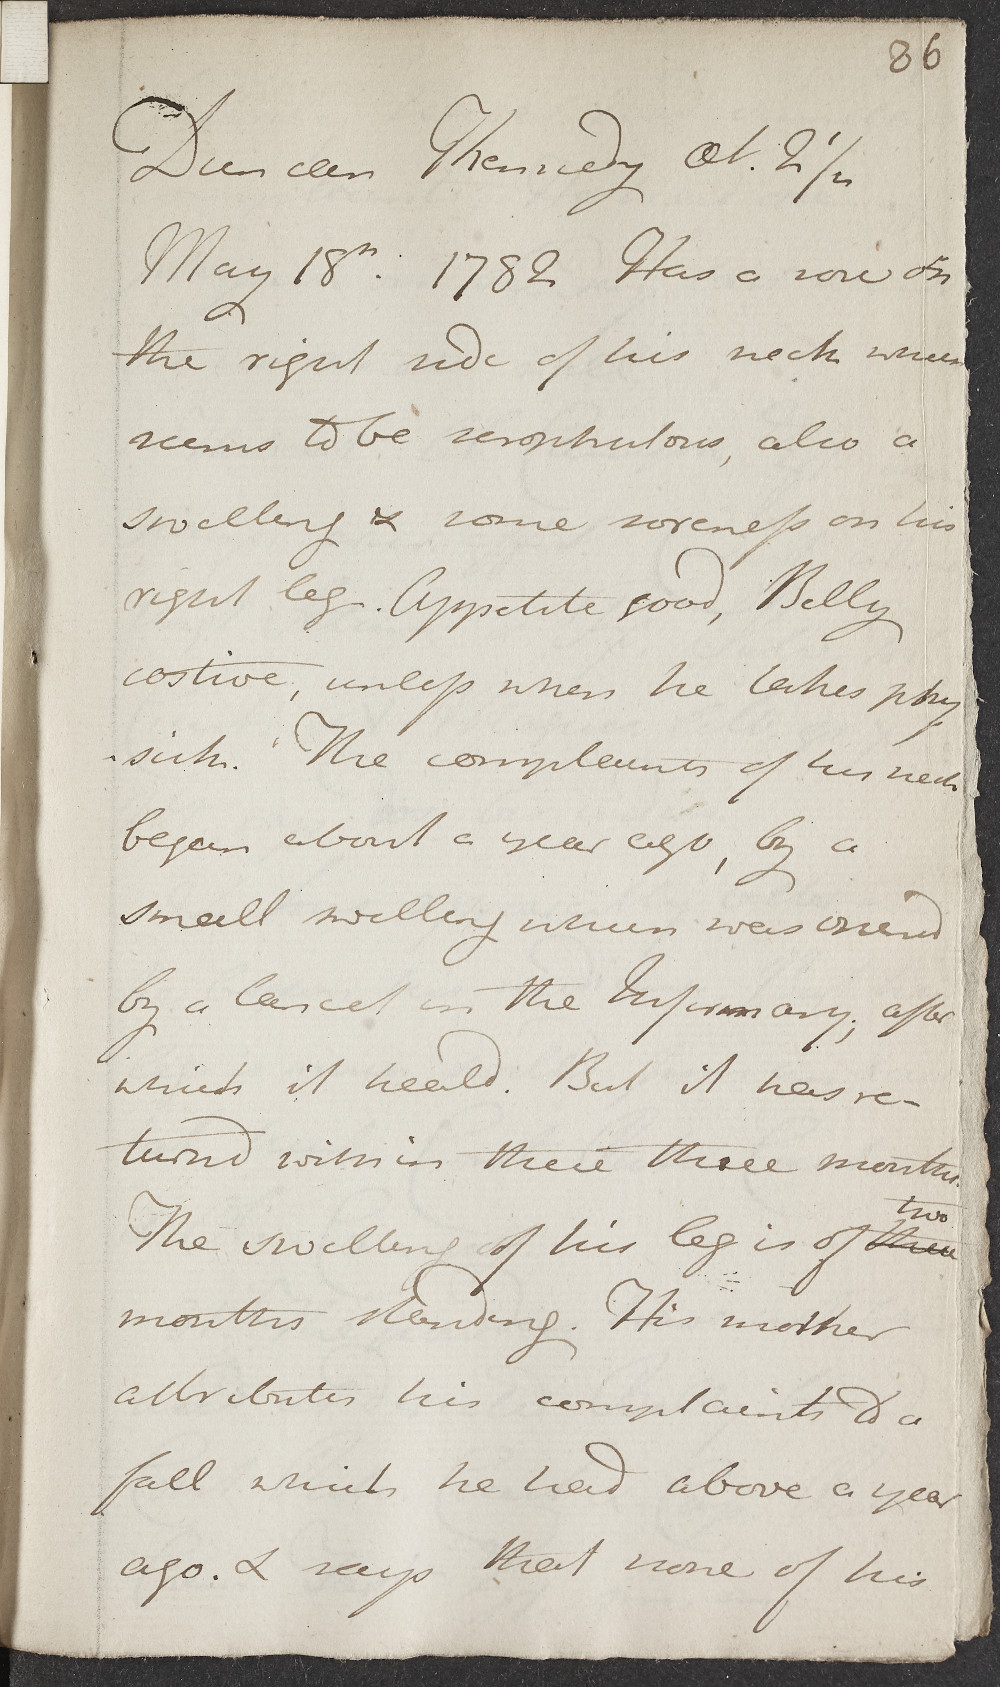 86
Duncan Kennedy Æt. 2 1/2
May 18th. 1782 Has a sore on
the right side of his neck which
seems to be scrophulous, also a
swelling & some soreness on his
right leg. Appetite good, Belly
costive, unless when he takes phy
-sick. The complaints of his neck
began about a year ago, by a
small swelling which was opend
by a lancet in the Infirmary, after
which it heald. But it has re-
turnd within these three months.
The swelling of his leg is of three two
months standing. His mother
attributes his complaints to a
fall which he had above a year
ago. & says that none of his